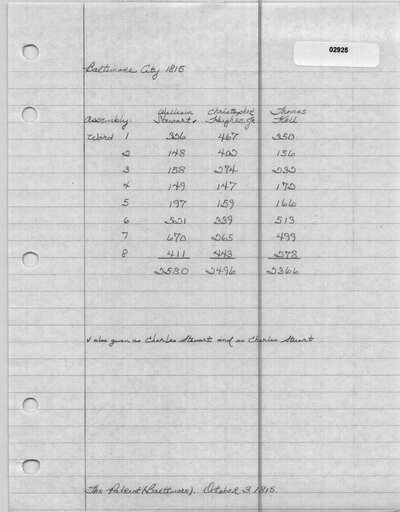 02925
Baltimore City 1815
William Christopher Thomas
Assembly: Stewart✓ Hughes, Jr. Kell
Ward 1 326 467 350
2 148 402 156
3 158 274 232
4 149 147 172
5 197 159 166
6 521 339 513
7 670 265 499
8 411 443 278
2580 2496 2366
✓ also given as Charles Stewart and as Charles Stuart
The Patriot (Baltimore). October 3 1815.